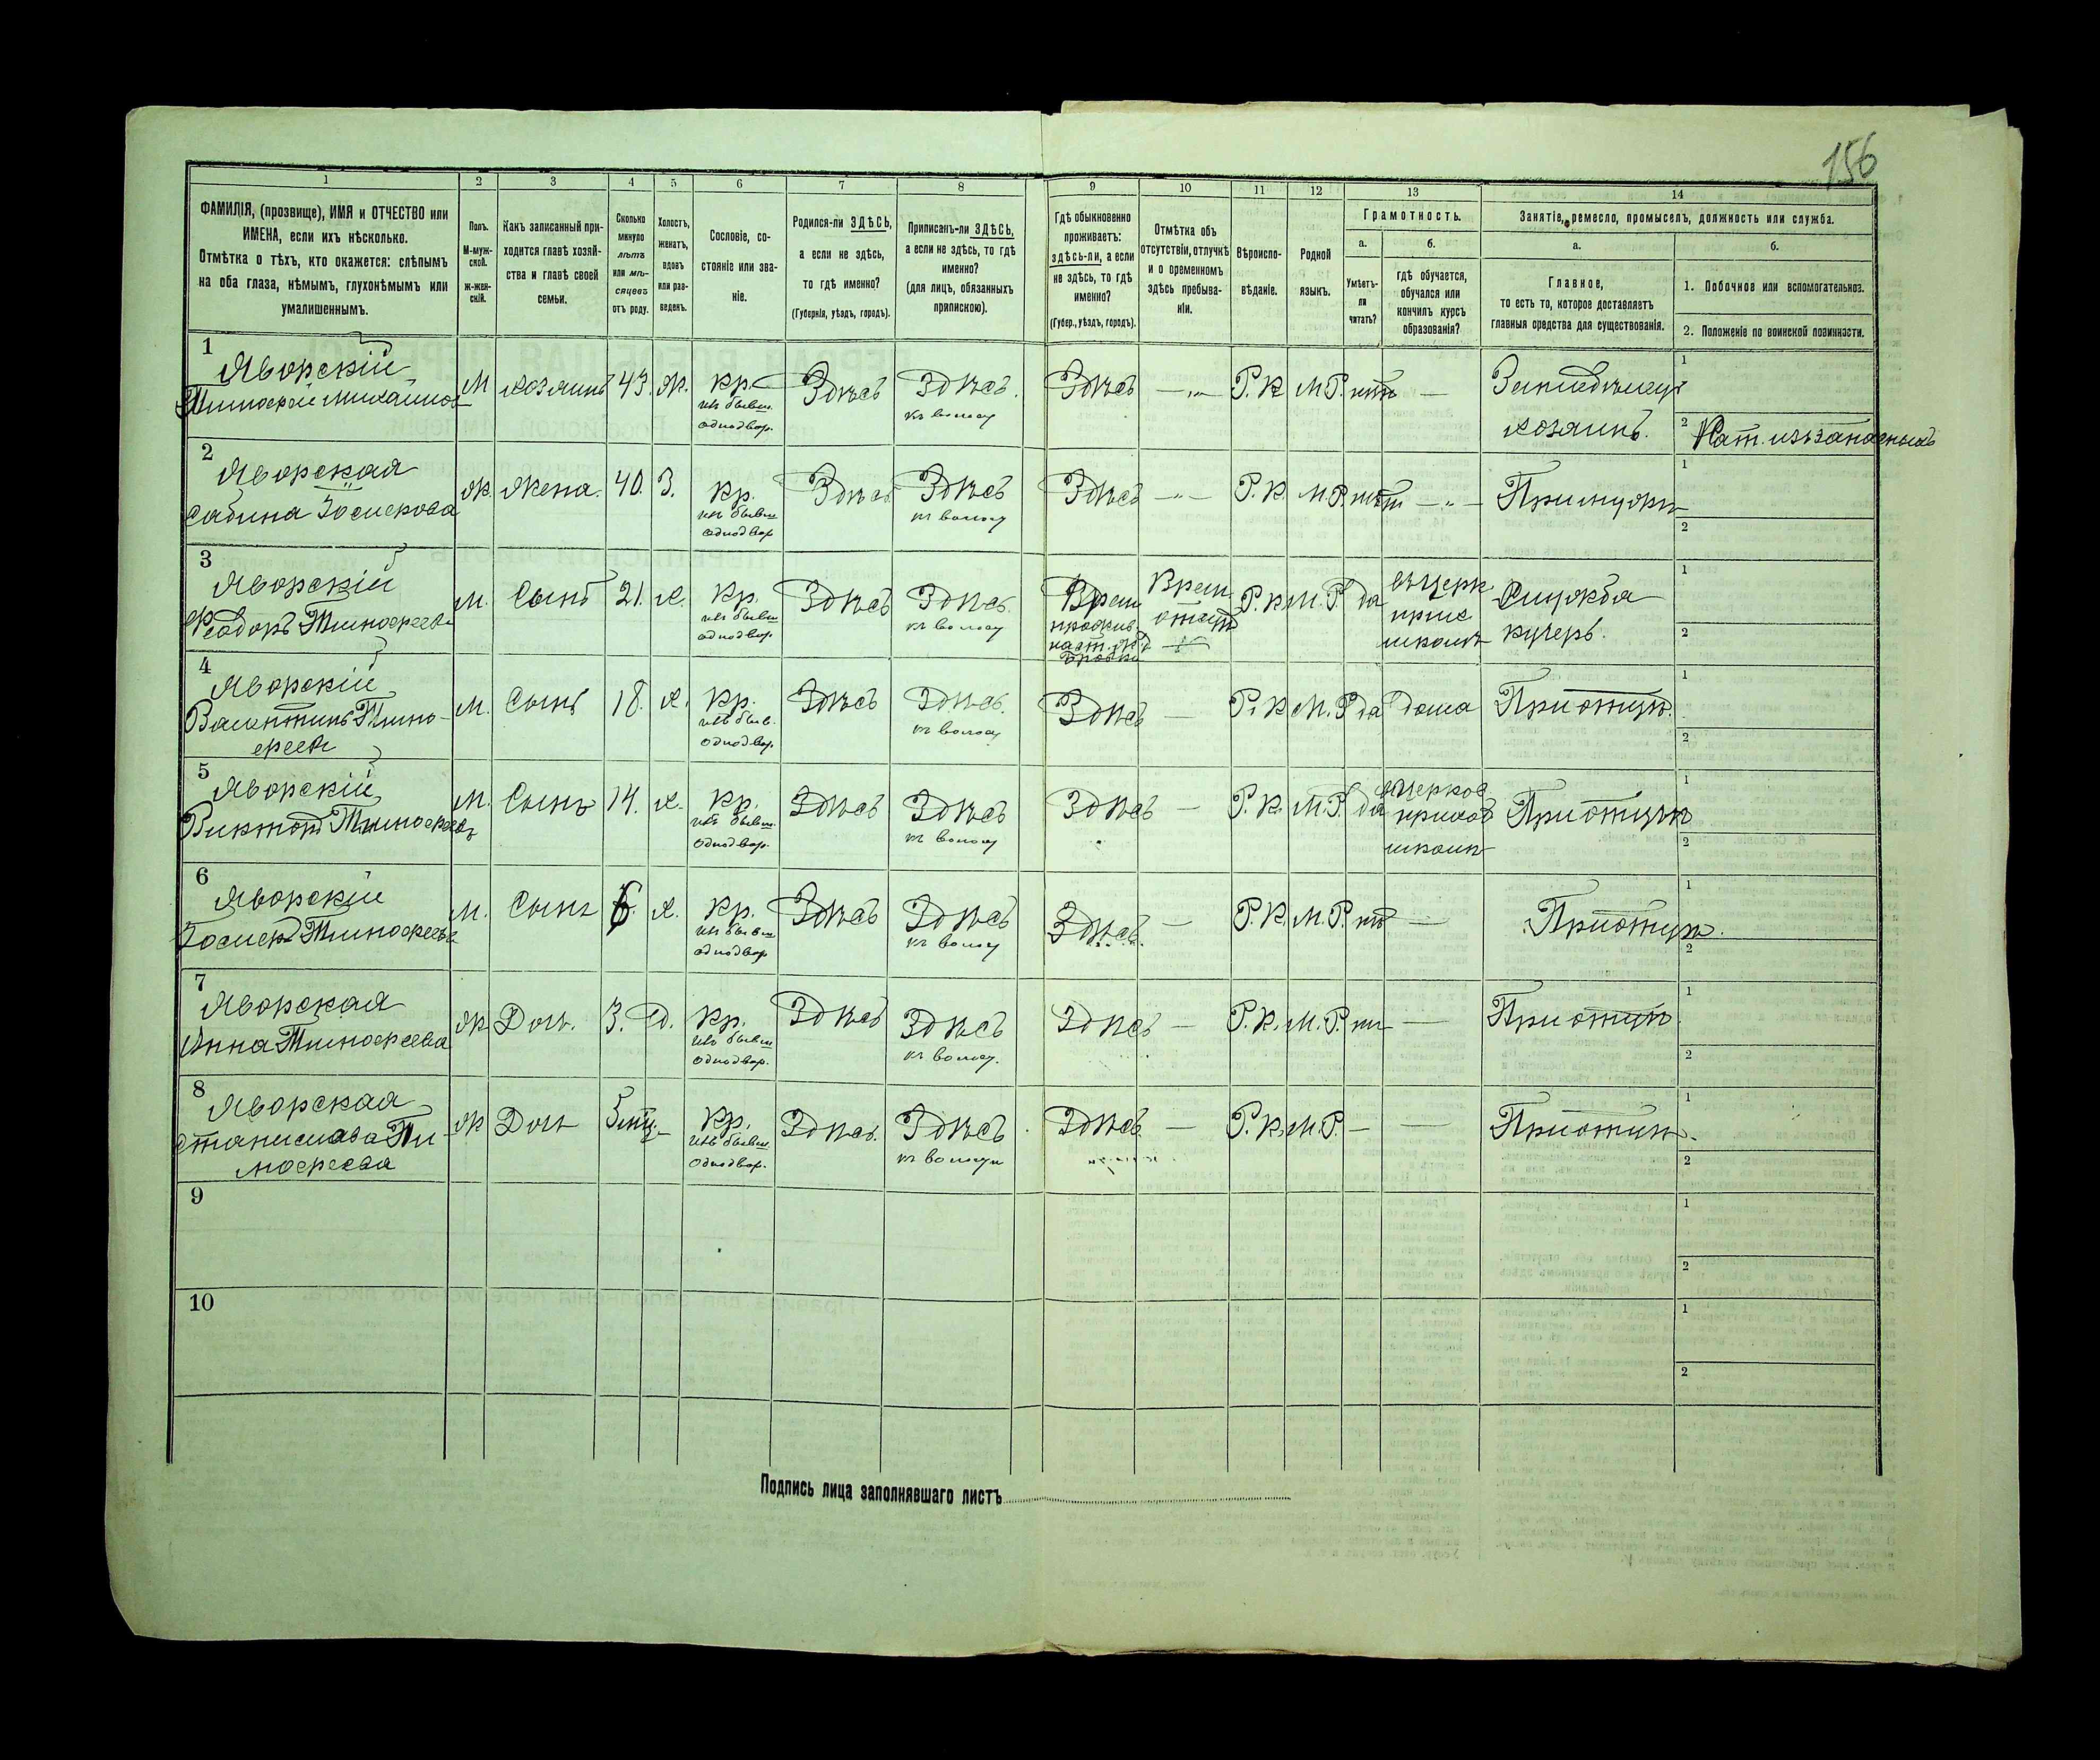 156
1 2 3 4 5 6 7 8 9 10 11 12 13 14
ФАМИЛІЯ, (прозвище), ИМЯ и ОТЧЕСТВО или
ИМЕНА, если ихъ нѣсколько.
Отмѣтка о тѣхъ, кто окажется: слѣпымъ
на оба глаза, нѣмымъ, глухонѣмымъ или
умалишеннымъ.
Полъ.
М-муж-
ской.
ж-жен-
скій.
Какъ записанный при-
ходится главѣ хозяй-
ства и главѣ своей
семьи.
Сколько
минуло
лѣтъ
или мѣ-
сяцевъ
отъ роду.
Холостъ,
женатъ,
вдовъ
или раз-
веденъ.
Сословіе, со-
стояніе или зва-
ніе.
Родился-ли ЗДѢСЬ,
а если не здѣсь,
то гдѣ именно?
(Губернія, уѣздъ, городъ).
Приписанъ-ли ЗДѢСЬ,
а если не здѣсь, то гдѣ
именно?
(для лицъ, обязанныхъ
припискою).
Гдѣ обыкновенно
проживаетъ:
здѣсь-ли, а если
не здѣсь, то гдѣ
именно?
(Губер., уѣздъ, городъ).
Отмѣтка объ
отсутствіи, отлучкѣ
и о временномъ
здѣсь пребыва-
ніи.
Вѣроиспо-
вѣданіе.
Родной
языкъ.
Грамотность.
а.
Умѣетъ-
ли
читать?
б.
гдѣ обучается,
обучался или
кончилъ курсъ
образованія?
Занятіе, ремесло, промыселъ, должность или служба.
а.
Главное,
то есть то, которое доставляетъ
главныя средства для существованія.
б.
1. Побочное или вспомогательное.
2. Положеніе по воинской повинности.
1
Яворскій
М хозяинъ 43. Ж. Кр. Здѣсь Здѣсь. Здѣсь — Р. К. М. Р. нѣтъ —
изъ бывш.
однодвор.
хозяинъ.
1
2
2
Яворская
Сабина Іосифова
Ж. Жена. 40. З. Кр. Здѣсь Здѣсь Здѣсь — Р. К. М. Р. нѣтъ — При мужѣ
изъ бывш
однодвор
1
2
3
Яворскій
Феодоръ Тимофеевъ
М. Сынъ 21. Х. Кр. Здѣсь Здѣсь. Р. К. М. Р. да
изъ бывш
однодвор
Врем
школѣ
Служба
кучеръ.
1
2
4
Яворскій
Валентинъ Тимо-
феевъ
М. Сынъ 18. Х. Кр. Здѣсь Здѣсь. Здѣсь — Р. К. М. Р. да дома При отцѣ.
изъ бывш.
однодвор.
1
2
5
Яворскій
Викторъ Тимофеевъ
М. Сынъ 14. Х. Кр. Здѣсь Здѣсь Здѣсь — Р. К. М. Р. да При отцѣ
изъ бывш.
однодвор.
въ церков
приход
школѣ
1
2
6
Яворскій
Іосифъ Тимофеевъ
М. Сынъ 6. Х. Кр. Здѣсь Здѣсь Здѣсь. — Р. К. М. Р. нѣ — При отцѣ.
изъ бывш
однодвор
1
2
7
Яворская
Анна Тимофеева
Ж Дочь. 3. Д. Кр. Здѣсь Здѣсь Здѣсь — Р. К. М. Р. — При отцѣ
изъ бывш
однодвор.
1
2
8
Яворская
Станислава Ти
мофеева
Ж Дочь Кр. Здѣсь. Здѣсь Здѣсь — Р. К. М. Р. — — При отцѣ.
изъ бывш
однодвор.
1
2
9
1
2
10
1
2
Подпись лица заполнявшаго листъ